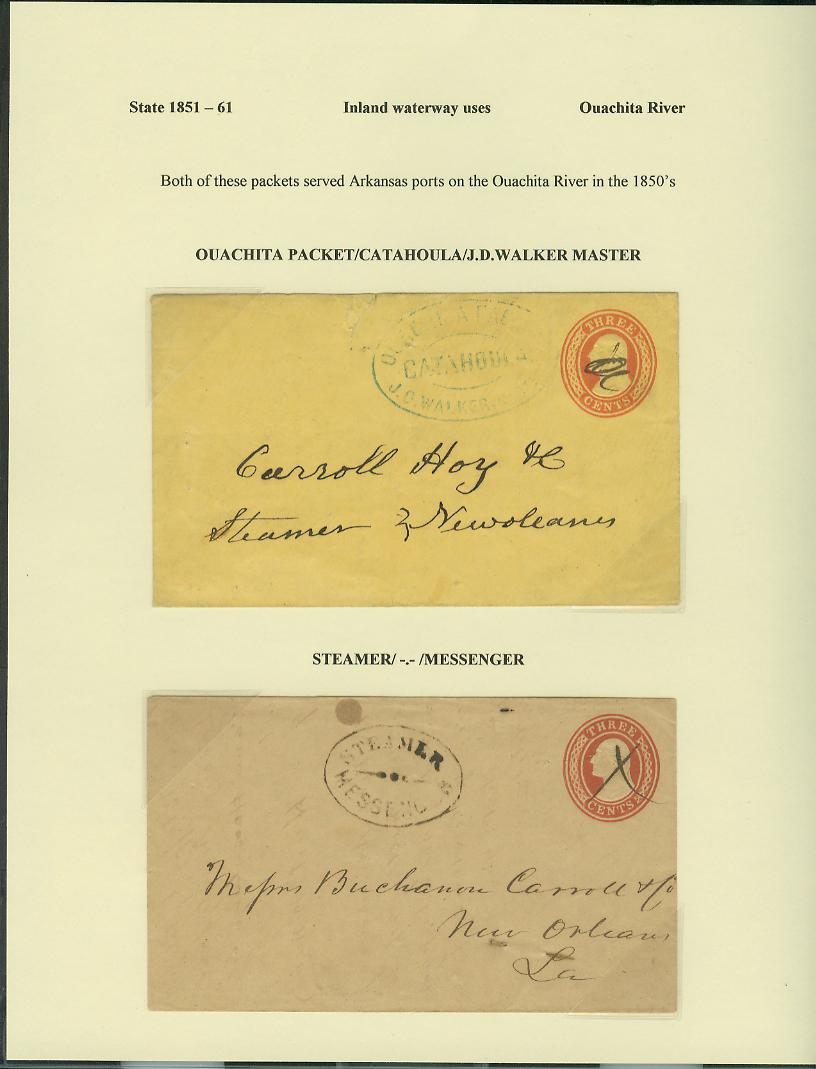 State 1851 – 61 Inland waterway uses Ouachita River
Both of these packets served Arkansas ports on the Ouachita River in the 1850's
OUACHITA PACKET/CATAHOULA/J.D.WALKER MASTER
CATAHOULA
J.D.WALKER
THREE
CENTS
Carroll Hoy & C
Steamer Neworleans
STEAMER/ -.- /MESSENGER
STEAMER
MESSENGER
THREE
CENTS
Messrs Buchanon Carroll & Co
New Orleans
La